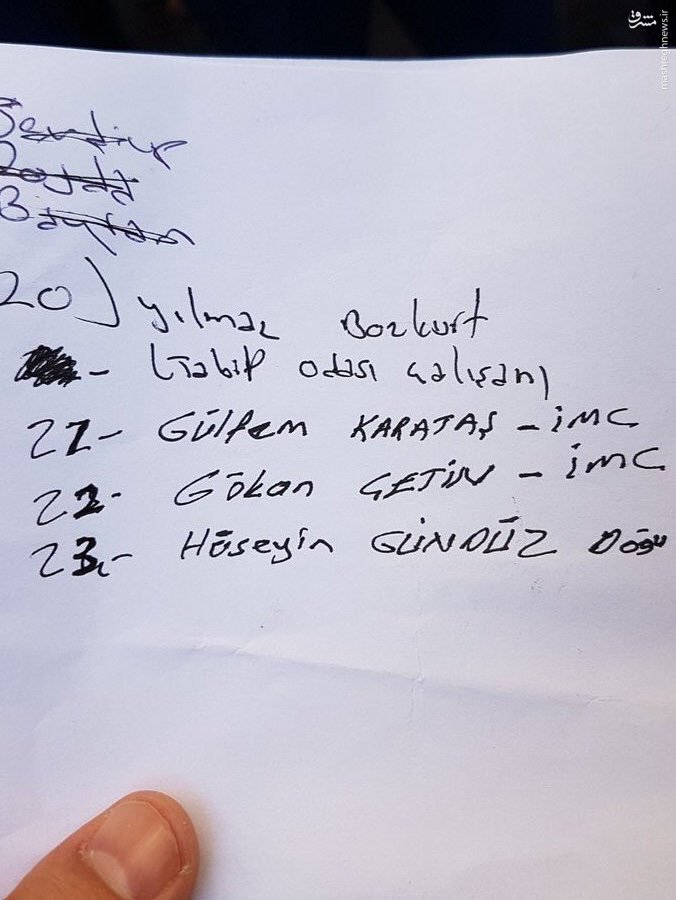 مشرق
mashreghnews.ir
20) Yılmaz Bozkurt
- Tabip odası çalışanı
21- GÜLFEM KARATAŞ - İMC
22- GÖKAN ÇETİN - İMC
23- HÜSEYİN GÜNDÜZ DOĞU